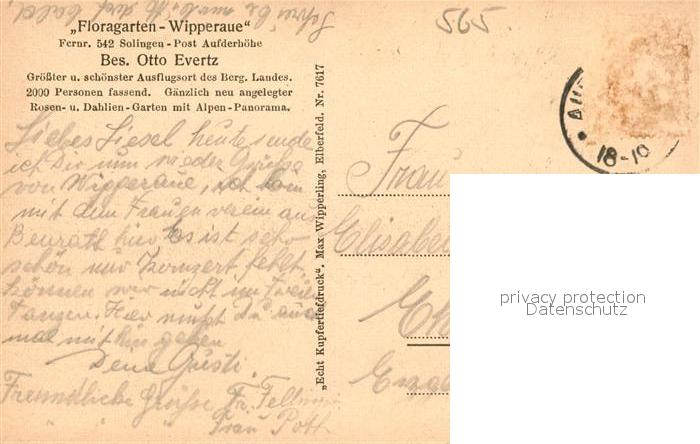 „Floragarten - Wipperaue“
Fernr. 542 Solingen - Post Aufderhöhe
Bes. Otto Evertz
Größter u. schönster Ausflugsort des Berg. Landes.
2000 Personen fassend. Gänzlich neu angelegter
Rosen- u. Dahlien-Garten mit Alpen-Panorama.
Liebes Liesel heute sende
ich Dir nun wieder Grüße
von Wipperaue, ich bin
mit dem Frauen verein aus
Benrath hier Es ist sehr
schön nur Konzert fehlt
können wir nicht im Freien
Tanzen. Hier mußt Du auch
mal mit hin gehen
Deine Gusti
Freundliche Grüße Fr.
" " " Frau Poth
„Echt Kupfertiefdruck“, Max Wipperling, Elberfeld. Nr. 7617
565
AUF
18-10
Frau
Elisabe
privacy protection
Datenschutz